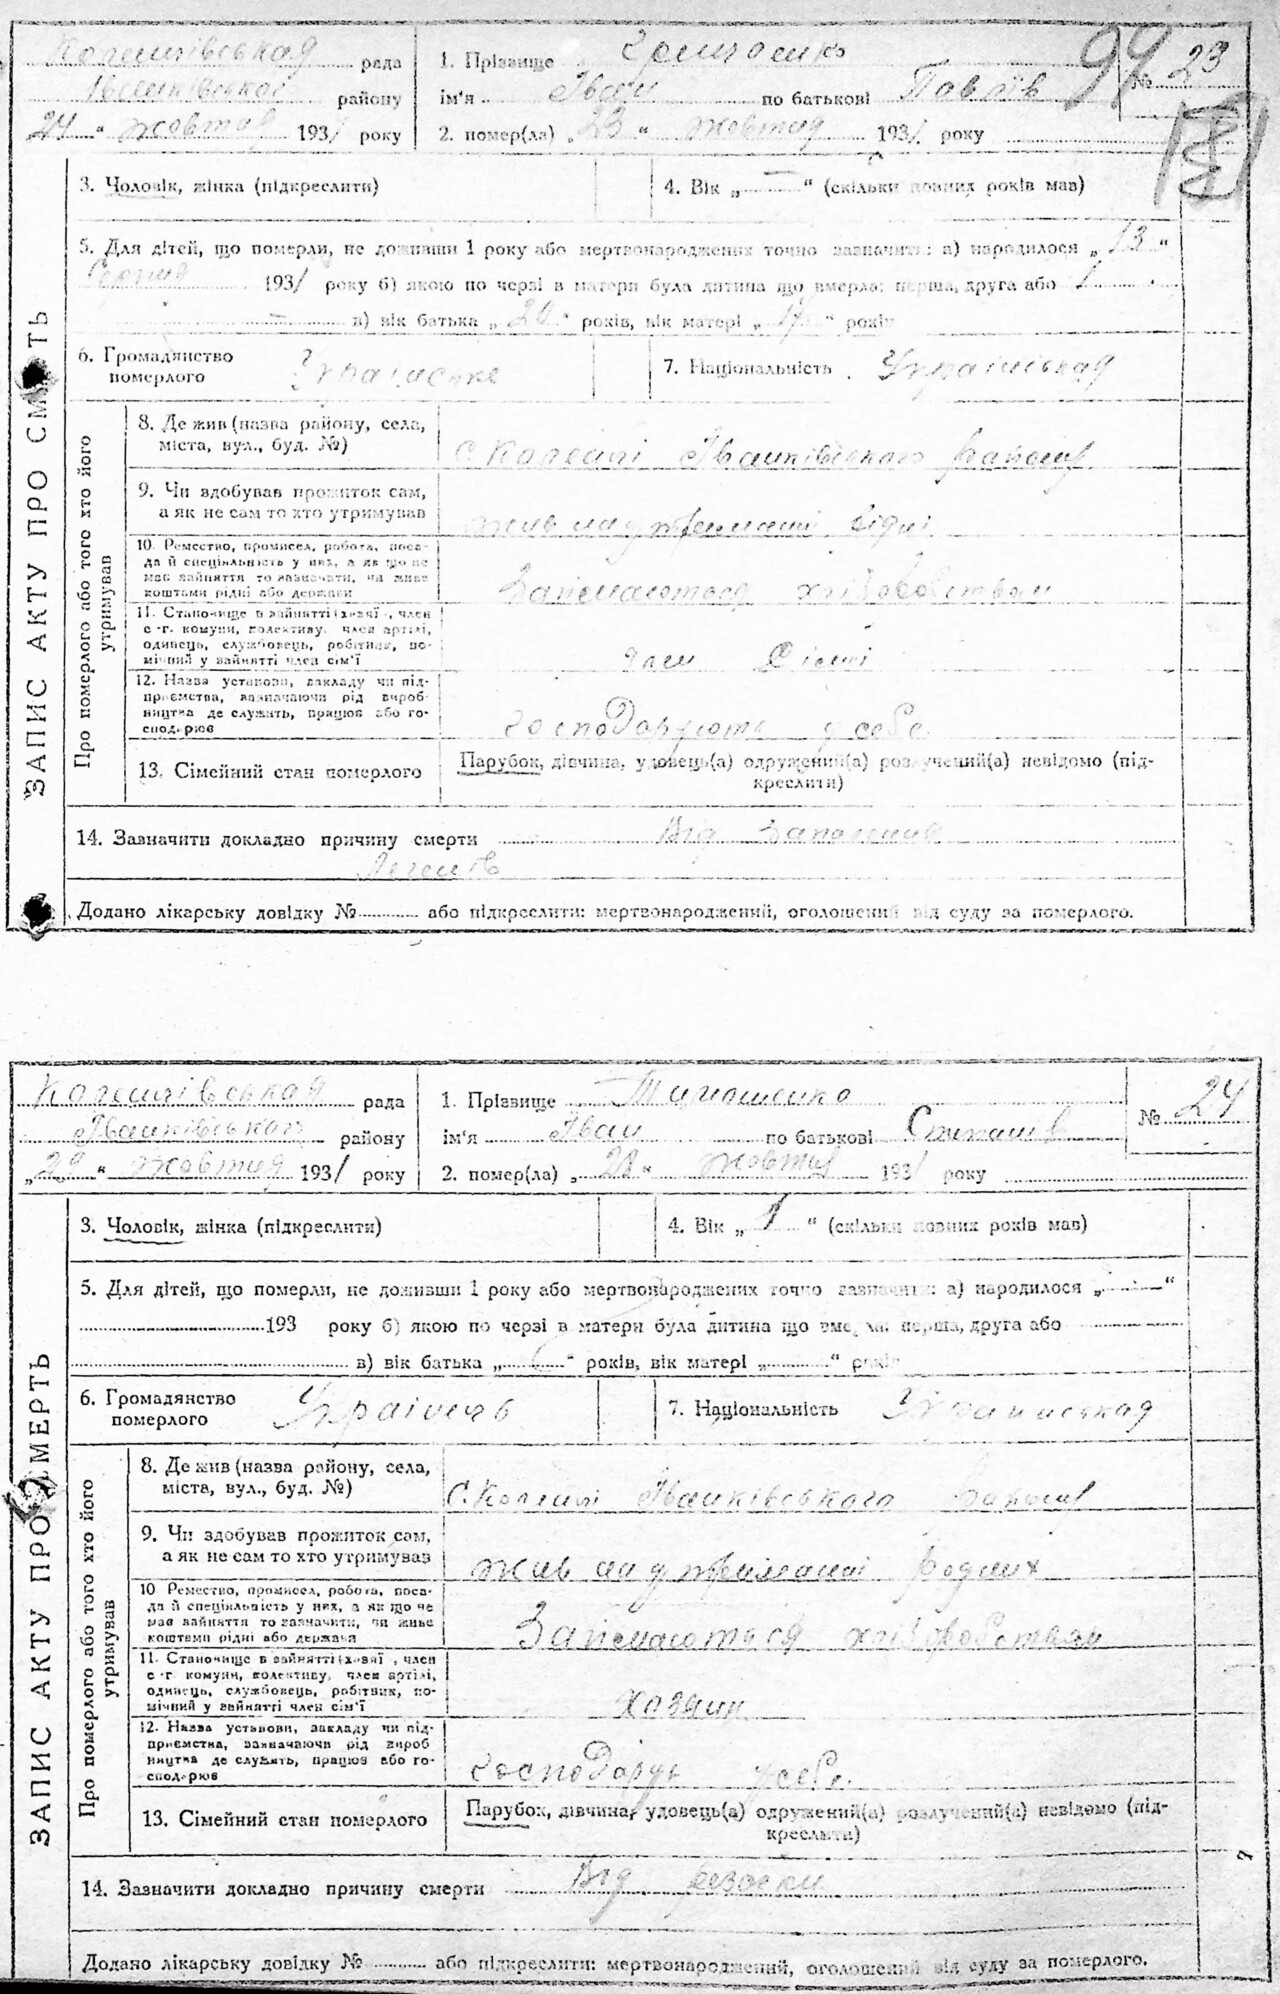 рада 1. Прізвище 99 № 23
району ім'я Іван по батькові Павлів
24 " жовтня 1931 року 2. помер(ла) „ 23 " жовтня 1931. року
3. Чоловік, жінка (підкреслити) 4. Вік „ — " (скільки повних років мав)
5. Для дітей, що померли, не доживши 1 року або мертвонароджених точно зазначити: а) народилося „ 13 "
Серпня 1931 року б) якою по черзі в матери була дитина що вмерла: перша, друга або 1
— в) вік батька „ 20 " років, вік матері „ " років
6. Громадянство
померлого
Українське
7. Національність Українська
ЗАПИС АКТУ ПРО СМ ТЬ
Про померлого або того хто його
утримував
8. Де жив (назва району, села,
міста, вул., буд. №)
с. Іванківського району
9. Чи здобував прожиток сам,
а як не сам то хто утримував
жив на утриманні рідні
10. Ремество, промисел, робота, поса-
да й спеціяльність у них, а як що не
має зайняття то зазначити, чи живе
коштами рідні або держави
Займаються хліборобством
11. Становище в зайнятті (хазяї , член
с -г. комуни, колективу, член артілі,
одинець, службовець, робітник, по-
мічний у зайнятті член сім'ї
член сім'ї
12. Назва установи, закладу чи під-
приємства, зазначаючи рід вироб-
ництва де служить, працює або го-
сподарює
господарюють у себе
13. Сімейний стан померлого
Парубок, дівчина, удовець(а) одружений(а) розлучений(а) невідомо (під-
креслити)
14. Зазначити докладно причину смерти Від запалення
легенів
Додано лікарську довідку № або підкреслити: мертвонароджений, оголошений від суду за померлого.
рада 1. Прізвище Тимошенко № 24
Іванківського району ім'я Іван по батькові Степанів
„ " жовтня 1931 року 2. помер(ла) „ 28 " жовтня 1931 року
3. Чоловік, жінка (підкреслити) 4. Вік „ 1 " (скільки повних років мав)
5. Для дітей, що померли, не доживши 1 року або мертвонароджених точно зазначити: а) народилося „ — "
193 року б) якою по черзі в матери була дитина що вмерла: перша, друга або
в) вік батька „ " років, вік матері „ " років
6. Громадянство
померлого
Українець
7. Національність Українська
ЗАПИС АКТУ ПРО СМЕРТЬ
Про померлого або того хто його
утримував
8. Де жив (назва району, села,
міста, вул., буд. №)
с. Іванківського району
9. Чи здобував прожиток сам,
а як не сам то хто утримував
жив на утриманні родних
10 Ремество, промисел, робота, поса-
да й спеціяльність у них, а як що не
має зайняття то зазначити, чи живе
коштами рідні або держави
Займаються хліборобством
11. Становище в зайнятті (хазяї , член
с -г. комуни, колективу, член артілі,
одинець, службовець, робітник, по-
мічний у зайнятті член сім'ї
хозяин
12. Назва установи, закладу чи під-
приємства, зазначаючи рід вироб
ництва де служить, працює або го-
сподарює
господарує у себе.
13. Сімейний стан померлого
Парубок, дівчина, удовець(а) одружений(а) розлучений(а) невідомо (під-
креслити)
14. Зазначити докладно причину смерти Від резачки
Додано лікарську довідку № або підкреслити: мертвонароджений, оголошений від суду за померлого.